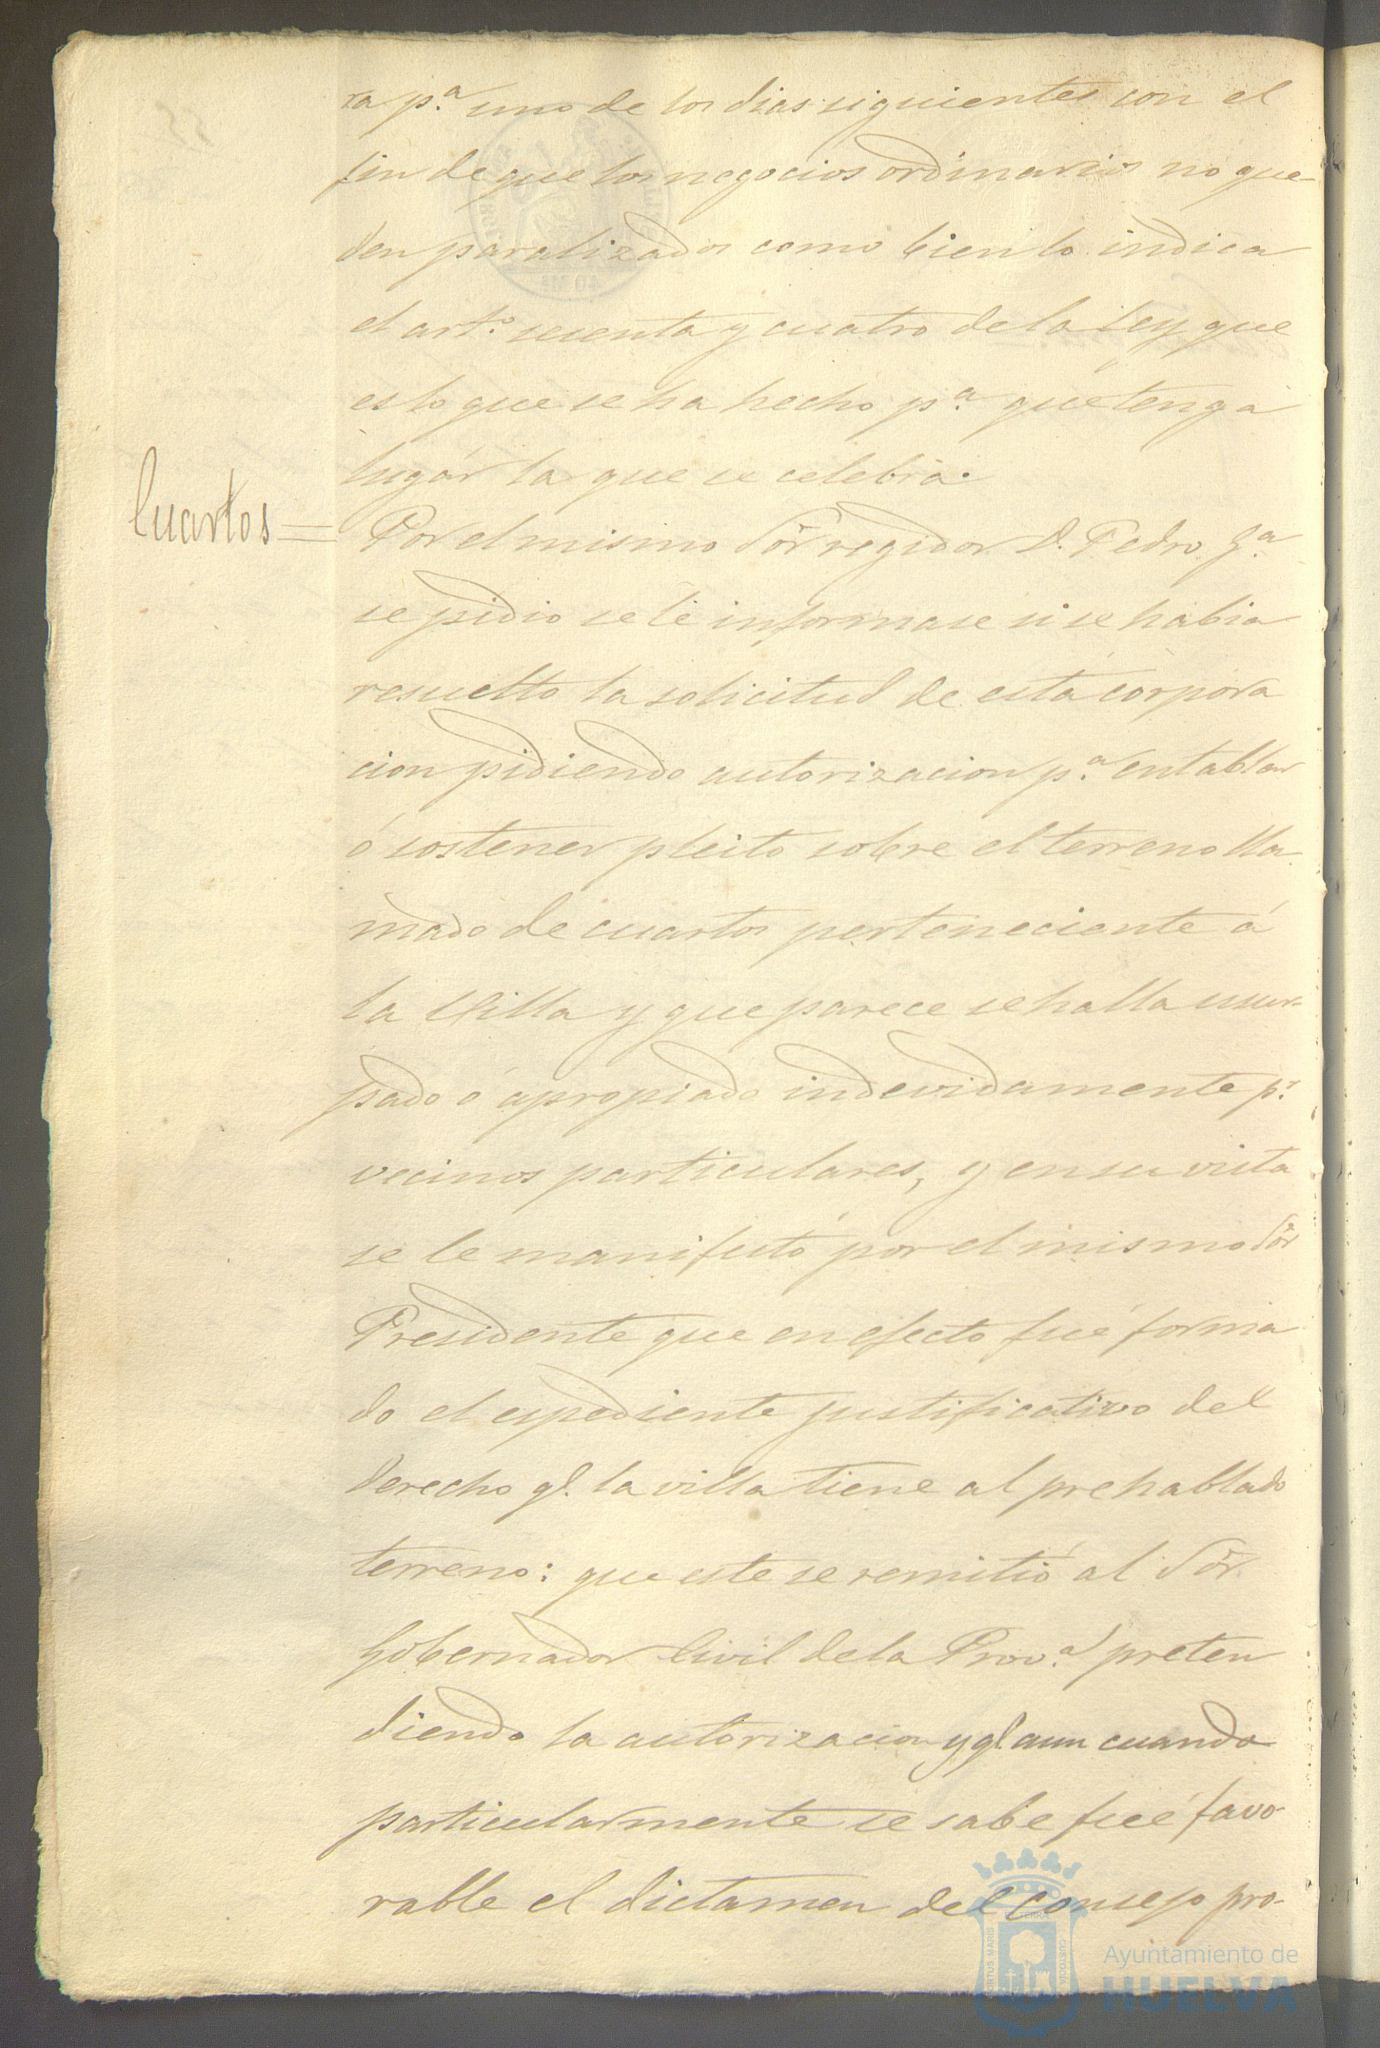 ra p.ª uno de los dias siguientes con el
fin de que los negocios ordinarios no que-
den paralizados como bien lo indica
el art.º sesenta y cuatro de la Ley que
es lo que se ha hecho p.ª que tenga
lugar la que se celebra.
Cuartos =
Por el mismo Sõr regidor D. Pedro G.ª
se pidio se le informase si se habia
resuelto la solicitud de esta corpora
cion pidiendo autorizacion p.ª entablar
ó sostener pleito sobre el terreno lla
mado de cuartos perteneciente á
la Villa y que parece se halla usur-
pado ó apropiado indevidamente p.r
vecinos particulares, y en su vista
se le manifestó por el mismo Sõr
Presidente que en efecto fué forma
do el espediente justificativo del
derecho q.e la villa tiene al prehablado
terreno: que este se remitió al Sõr
Gobernador Civil de la Prov.ª preten
diendo la autorizacion y q.e aun cuando
particularmente se sabe fué favo-
rable el dictamen del consejo pro-
Ayuntamiento de
HUELVA